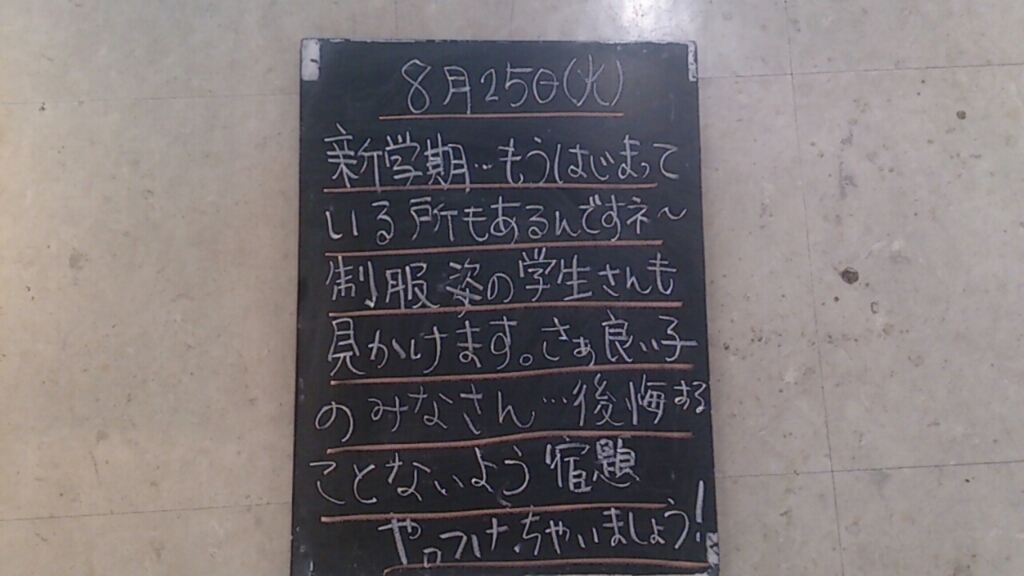 8月25日(火)
新学期…もうはじまって
いる所もあるんですネ～
制服姿の学生さんも
見かけます。さぁ良い子
のみなさん…後悔する
ことないよう宿題
やっつけちゃいましょう!